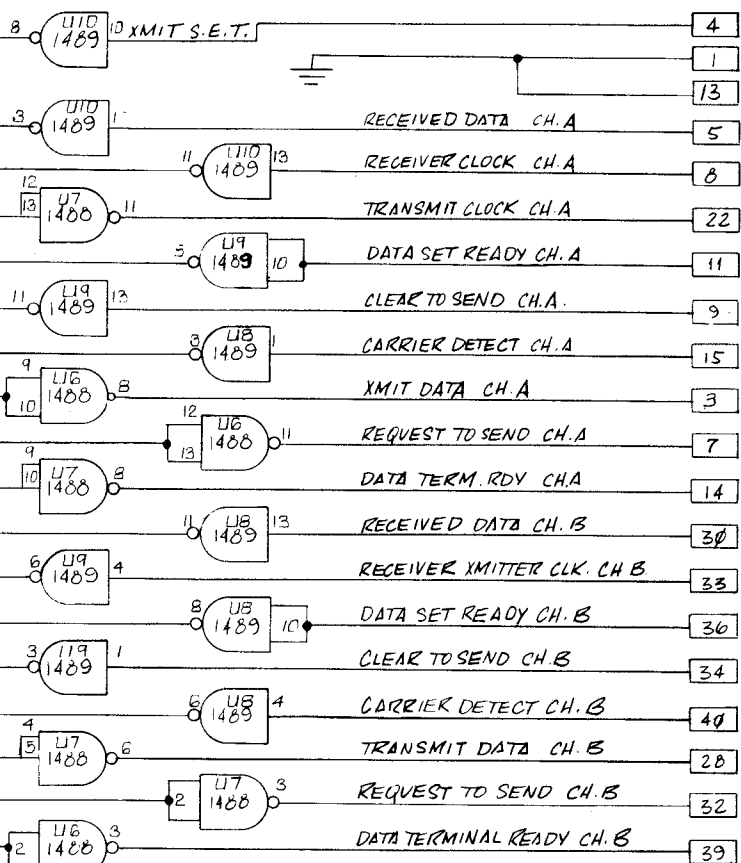 8 U10 1489 10 XMIT S.E.T. 4
1
13
3 U10 1489 1 RECEIVED DATA CH.A 5
11 U10 1489 13 RECEIVER CLOCK CH.A 8
12 13 U7 1488 11 TRANSMIT CLOCK CH.A 22
U9 1489 10 DATA SET READY CH.A 11
11 U9 1489 13 CLEAR TO SEND CH.A. 9
3 U8 1489 1 CARRIER DETECT CH.A 15
9 10 U6 1488 8 XMIT DATA CH.A 3
12 13 U6 1488 11 REQUEST TO SEND CH.A 7
9 10 U7 1488 8 DATA TERM. RDY CH.A 14
11 U8 1489 13 RECEIVED DATA CH.B 30
6 U9 1489 4 RECEIVER XMITTER CLK. CH B 33
8 U8 1489 10 DATA SET READY CH.B 36
3 U9 1489 1 CLEAR TO SEND CH.B 34
6 U8 1489 4 CARRIER DETECT CH.B 40
4 5 U7 1488 6 TRANSMIT DATA CH.B 28
2 U7 1488 3 REQUEST TO SEND CH.B 32
2 U6 1488 3 DATA TERMINAL READY CH.B 39